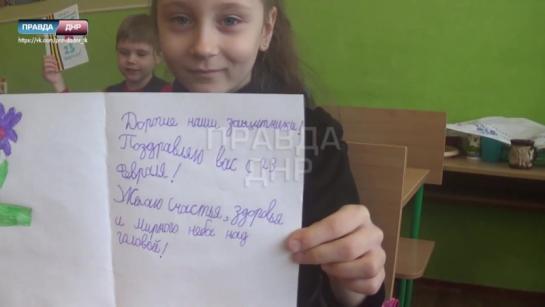 ПРАВДА ДНР
Дорогие наши защитники!
Поздравляю вас с 23
Февраля!
Желаю счастья, здоровья
и мирного неба над
головой!
ПРАВДА
ДНР